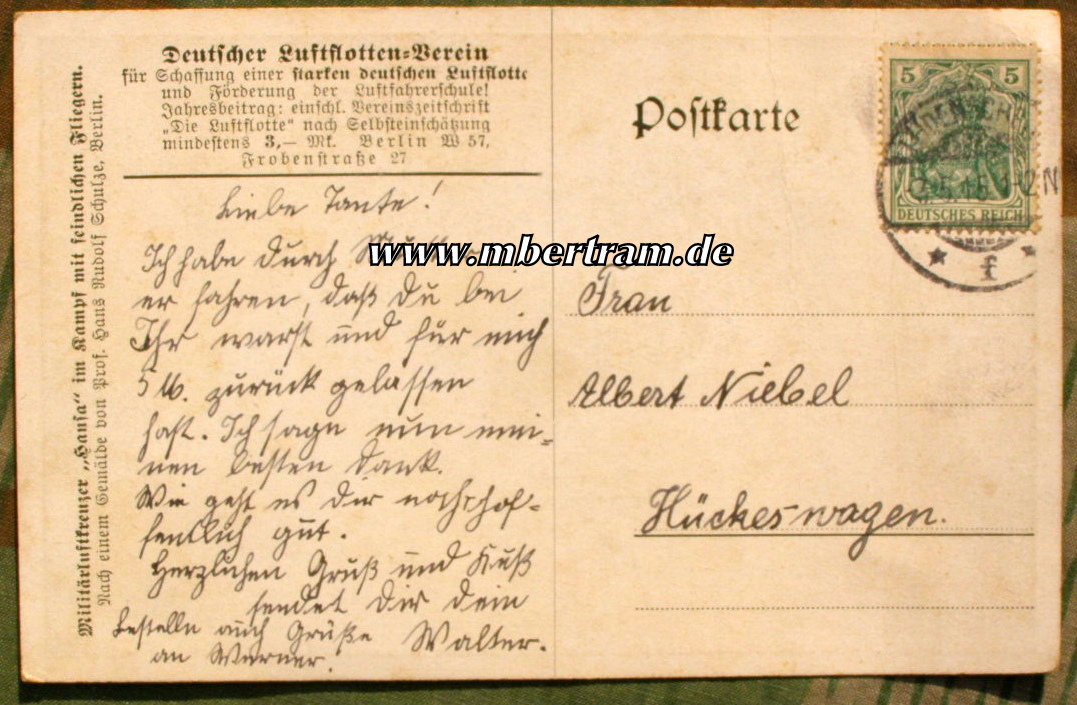 Deutscher Luftflotten-Verein
für Schaffung einer starken deutschen Luftflotte
und Förderung der Luftfahrerschule!
Jahresbeitrag: einschl. Vereinszeitschrift
„Die Luftflotte“ nach Selbsteinschätzung
mindestens 3,— Mk. Berlin W 57,
Frobenstraße 27
Militärluftkreuzer „Hansa“ im Kampf mit feindlichen Fliegern.
Nach einem Gemälde von Prof. Hans Rudolf Schulze, Berlin.
Liebe Tante!
Ich habe durch
er fahren, daß du bei
Ihr warst und für mich
5 M. zurück gelassen
hast. Ich sage nun mei-
nen besten Dank.
Wie geht es Dir hof-
fentlich gut.
Herzlichen Gruß und Kuß
sendet Dir dein
Walter.
Bestelle auch Grüße
an Werner.
www.mbertram.de
Postkarte
5 5
DEUTSCHES REICH
1-2 N
* f *
Frau
Albert Niebel
Hückeswagen.